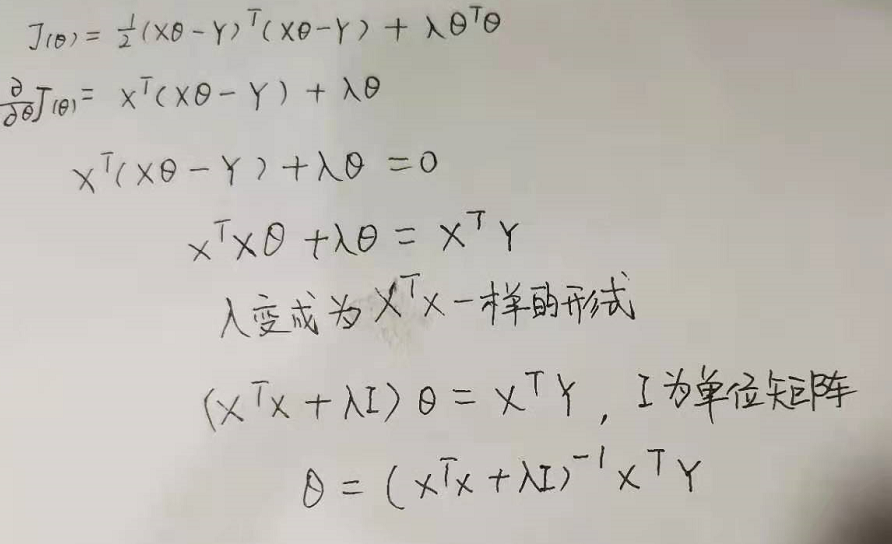 J(θ) = 1/2 (Xθ - Y)ᵀ(Xθ - Y) + λθᵀθ
∂/∂θ J(θ) = Xᵀ(Xθ - Y) + λθ
Xᵀ(Xθ - Y) + λθ = 0
XᵀXθ + λθ = XᵀY
λ变成为XᵀX一样的形式
(XᵀX + λI) θ = XᵀY , I为单位矩阵
θ = (XᵀX + λI)⁻¹ XᵀY